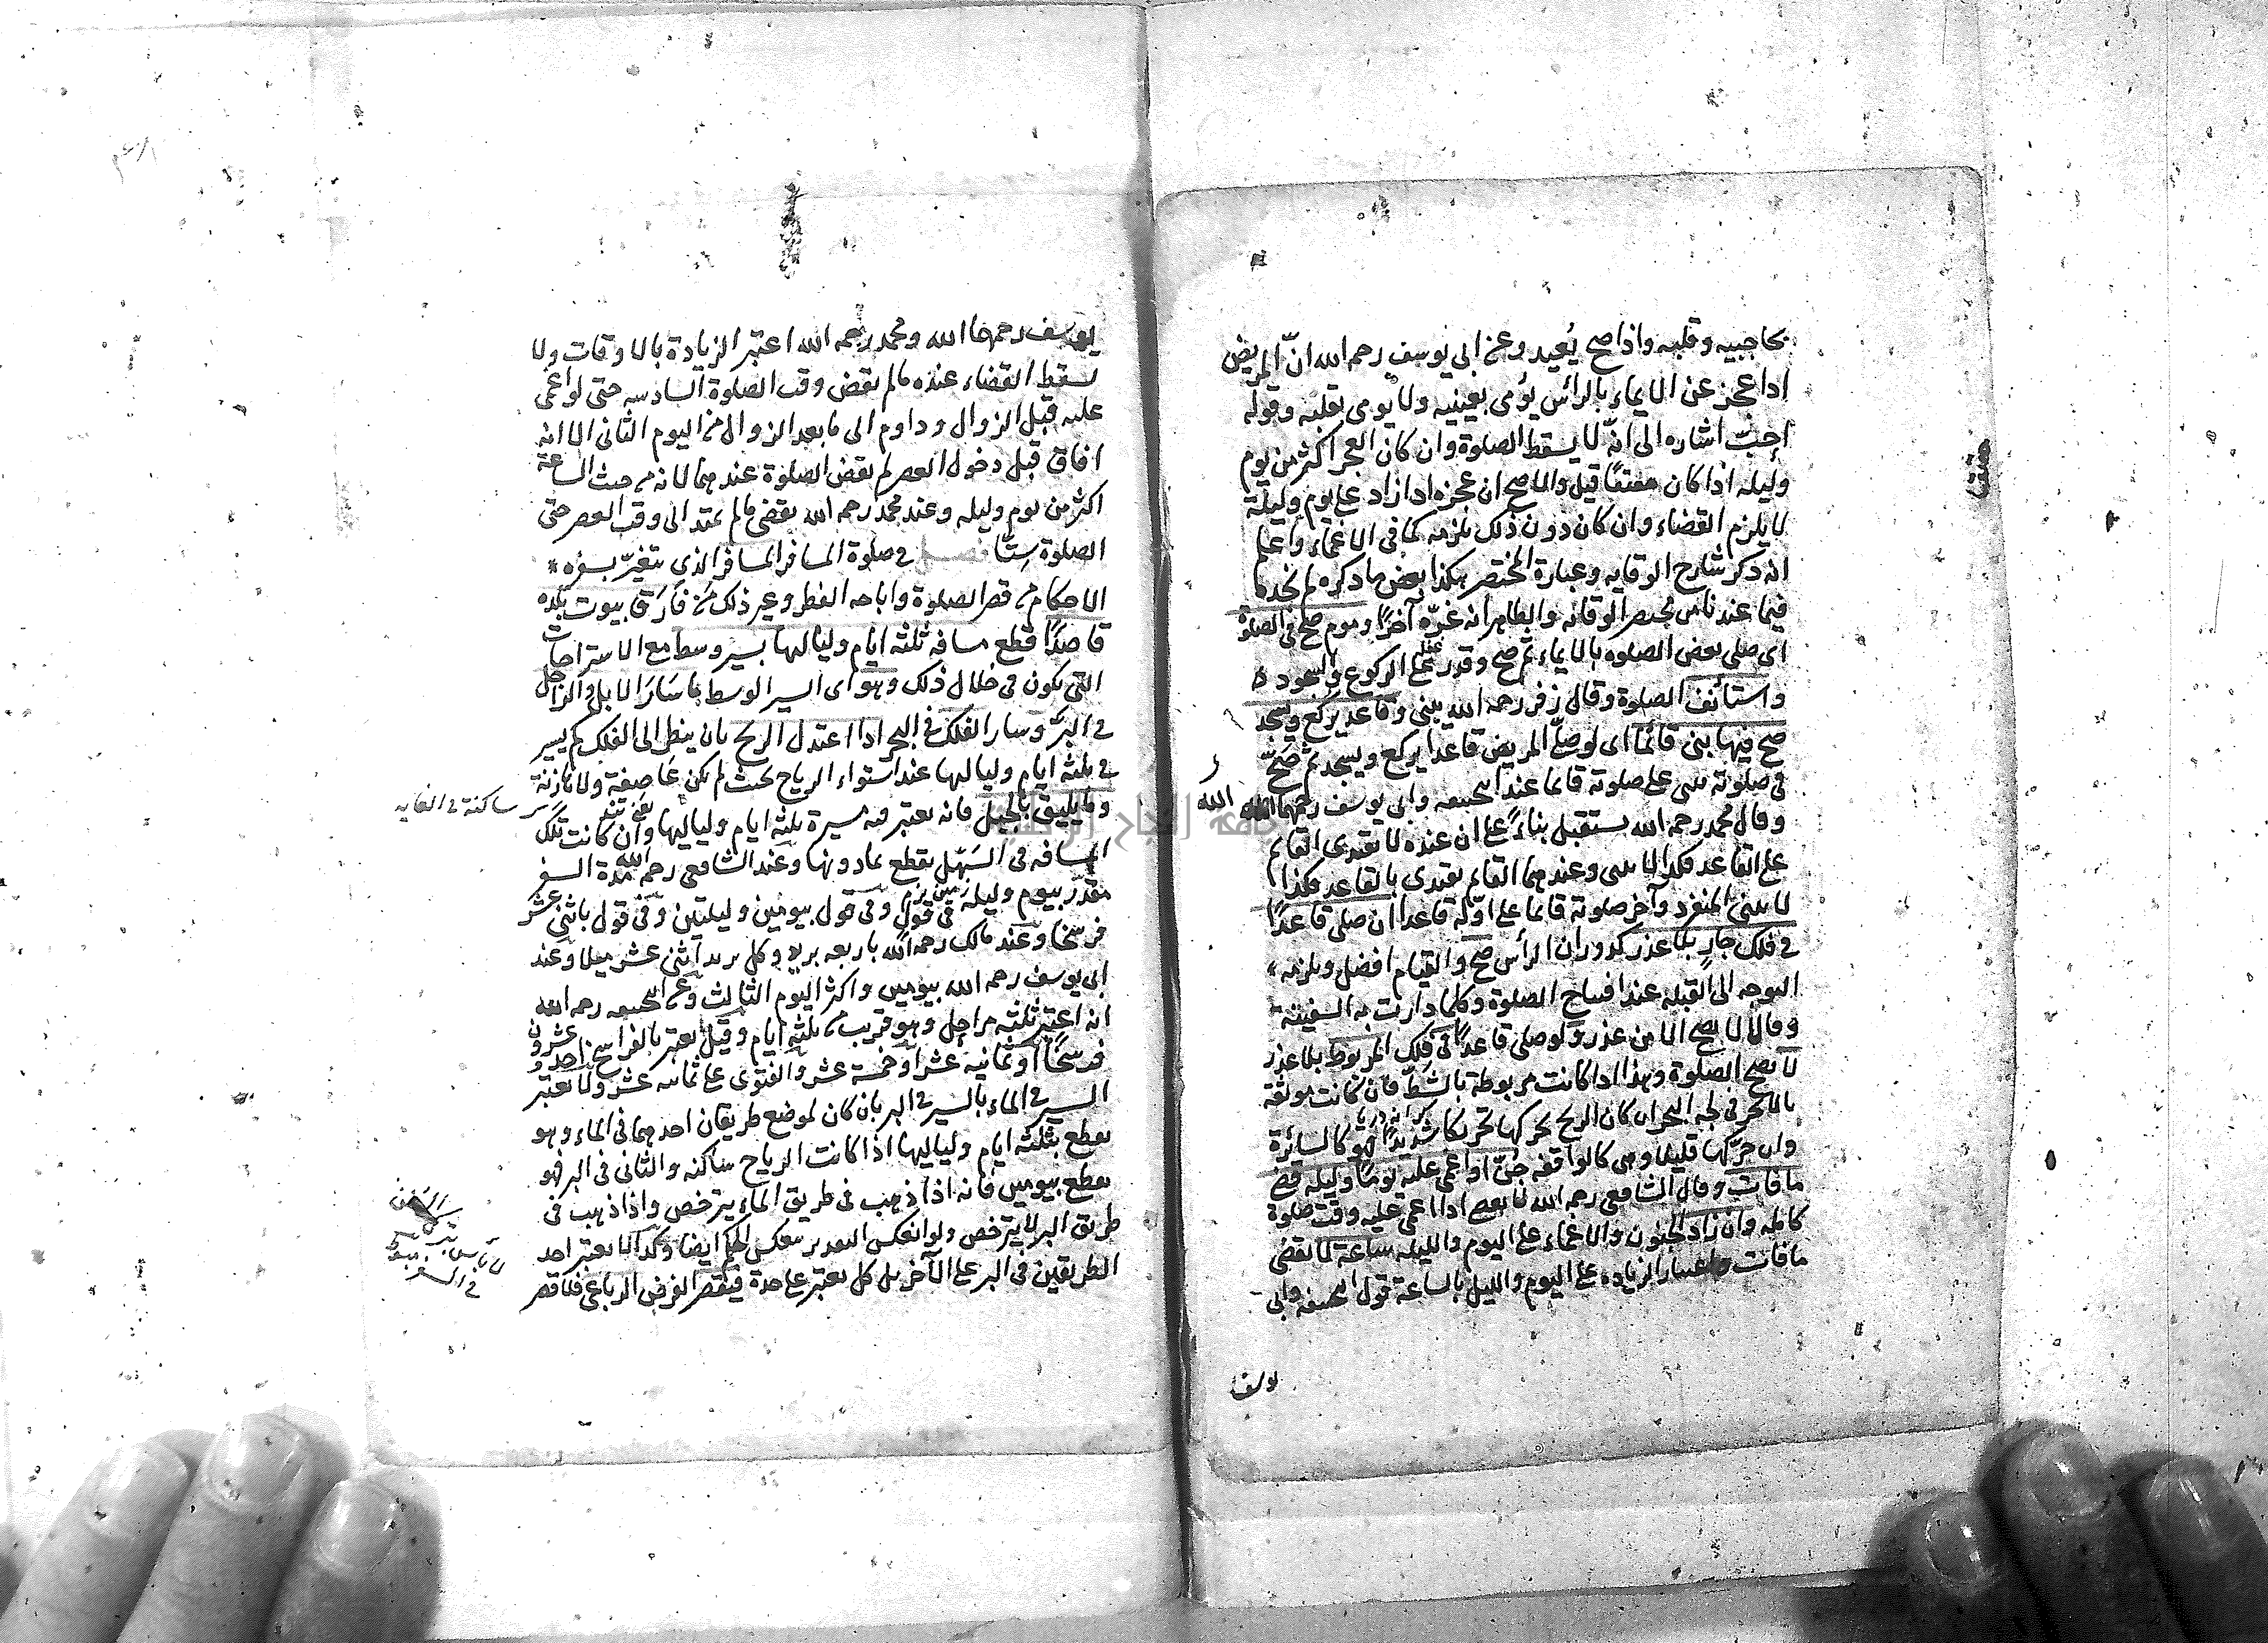 بحاجبيه وقلبه واذا صح يُعيد وعن ابى يوسف رحمه الله انّ المريض
اذا عجز عن الايماء بالرأس يؤمى بعينيه ولا يومى بقلبه وقوله
اشاره الى انّه لا يسقط الصلوة وان كان العجز اكثر من يوم
وليله اذا كان مفيقا قيل والاصح ان عجزه اذا زاد على يوم وليلة
لا يلزم القضاء وان كان دون ذلك يلزمه كما فى الاغماء واعلم
انه ذكر شارح الوقايه وعبارة المختصر هكذا بعض ما ذكره لم نجده
فيما عندنا من مختصر الوقايه والظاهر انه غيّره آخرًا وموم صح فى الصلوة
اى صلى بعض الصلوة بالايماء ثم صح وقدر على الركوع والسجود
واستأنف الصلوة وقال زفر رحمه الله يبنى وقاعد يركع ويسجد
صح فيها بنى قائما اى لو صلّى المريض قاعدا يركع ويسجد ثم صحّ
فى صلوته بنى على صلوته قائما عند ابى حنيفه وابى يوسف رحمهما الله
وقال محمد رحمه الله يستقبل بناءً على ان عنده لا يقتدى القائم
على القاعد فكذا لا يبنى وعندهما القائم يقتدى بالقاعد فكذا
لا يبنى المنفرد وآخر صلوته قائما على اوّله قاعدا ان صلى قاعدًا
فى فلك جارٍ بلا عذر كدوران الرأس صح والقيام افضل ويلزمه
التوجه الى القبله عند افتتاح الصلوة وكلما دارت به السفينة
وقالا لا يصح الا من عذر ولو صلى قاعدًا فى فلك المربوط بلا عذر
لا يصح الصلوة وهذا اذا كانت مربوطة بالشطّ فان كانت موثقة
فى لجه البحر ان كان الريح يحركها تحريكا شديدًا فهو كالسائرة
وان حرّكها قليلا وهى كالواقفه جُنّ او اغمى عليه يومًا وليله قضى
ما فات وقال الشافعى رحمه الله لا يقضى اذا اغمى عليه وقت صلوة
كامله وان زاد الجنون والاغماء على اليوم والليله ساعة لا يقضى
ما فات واعتبار الزياده على اليوم والليل بالساعة قول ابى حنيفه وابى
يوسف
يوسف رحمهما الله ومحمد رحمه الله اعتبر الزيادة بالاوقات ولا
يسقط القضاء عنده ما لم يقض وقت الصلوة السادسه حتى لو اغمى
عليه قبل الزوال وداوم الى ما بعد الزوال من اليوم الثانى الا انه
افاق قبل دخول العصر لم يقض الصلوة عندهما لانه من حيث الساعة
اكثر من يوم وليله وعند محمد رحمه الله يقضى ما لم يمتد الى وقت العصر حتى
الصلوة سِتًّا فصل فى صلوة المسافر المسافر الذى يتغيّر بسفره
الاحكام من قصر الصلوة واباحه الفطر وغير ذلك من فارق بيوت بلده
قاصدًا قطع مسافه ثلثه ايام ولياليها بسير وسط مع الاستراحات
التى يكون فى خلال ذلك وهو اى السير الوسط ما سَارَ الابل والراجل
فى البر وسار الفلك فى البحر اذا اعتدل الريح بان ينظر الى الفلك كم يسير
فى ثلثه ايام ولياليها عند استواء الرياح بحيث لم يكن عاصفة ولا
ساكنة فى الغايه
وما يليق بالجبل فانه يعتبر فيه مسيرة ثلثه ايام ولياليها وان كانت تلك
المسافه فى السّهل يقطع بما دونها وعند الشافعى رحمه الله مدة السفر
مقدّر بيوم وليله فى قول وفى قول بيومين وليلتين وفى قول باثنى عشر
فرسخا وعند مالك رحمه الله باربعه برد وكل بريد اثنى عشر ميلا وعند
ابى يوسف رحمه الله بيومين واكثر اليوم الثالث وعن ابى حنيفه رحمه الله
انه اعتبر ثلثه مراحل وهو قريب من ثلثه ايام وقيل يعتبر بالفراسخ احد وعشرون
فرسخًا او ثمانيه عشر او خمسة عشر والفتوى على ثمانيه عشر ولا يعتبر
السير فى الماء بالسير فى البر بان كان لموضع طريقان احدهما فى الماء وهو
يقطع بثلثه ايام ولياليها اذا كانت الرياح ساكنه والثانى فى البر فهو
يقطع بيومين فانه اذا ذهب فى طريق الماء يترخص واذا ذهب فى
طريق البر لا يترخص ولو انعكس التقدير ينعكس الحكم ايضا وكذا لا يعتبر احد
الطريقين فى البر على الآخر بل كل يعتبر على حدة فيقصر الفرض الرباعى فلا قصر